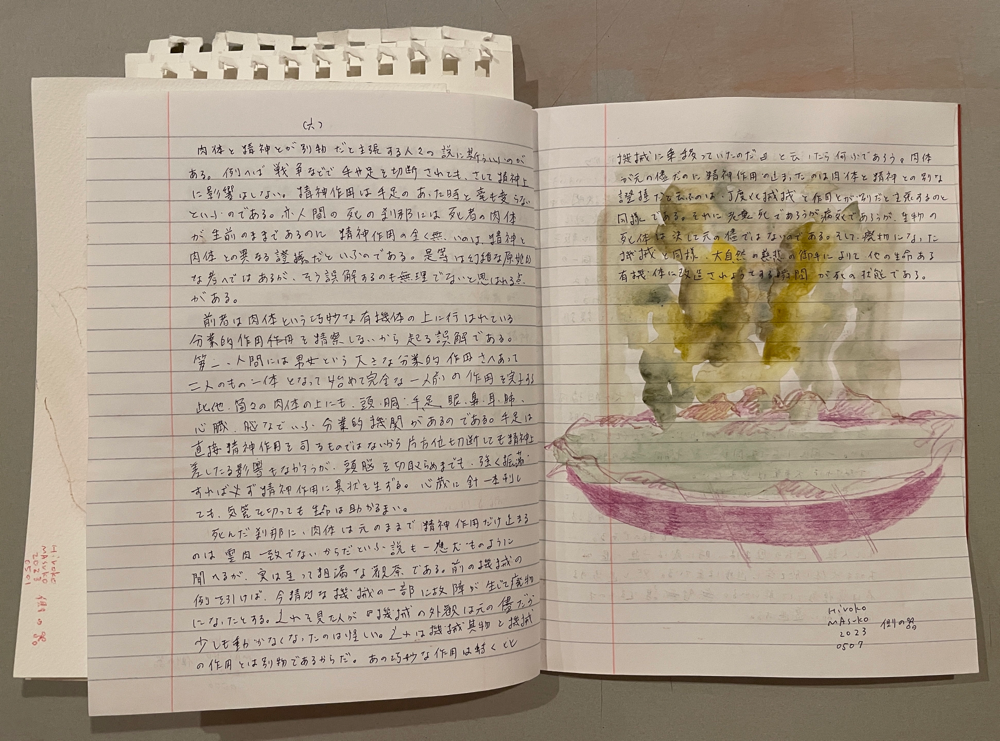 (六)
肉体と精神とが別物だと主張する人々の説に斯ういふのが
ある。例へば戦争などで手や足を切断されても、さして精神上
に影響はしない。精神作用は手足のあった時と毫も変らない
といふのである。亦人間の死の刹那には死者の肉体
が生前のままであるのに精神作用の全く無いのは、精神と
肉体との異なる證拠だといふのである。是等は幼稚な原始的
な考へではあるが、そう誤解するのも無理でないと思はれる点
がある。
前者は肉体といふ巧妙な有機体の上に行はれている
分業的作用を精察しないから起る誤解である。
第一、人間には男女といふ大きな分業的作用さへあって
二人のもの一体となって始めて完全な一人前の作用を完うする
此他、箇々の肉体の上にも、頭、胴、手足、眼、鼻、耳、肺、
心臓、脳などいふ分業的機関があるのである。手足は
直接精神作用を司るものではないから片方位切断しても精神上
差したる影響もなかろうが、頭脳を切取らぬまでも、強く振盪
すれば必ず精神作用に異状を生ずる。心臓に針一本刺し
ても、気管を切っても生命は助かるまい。
死んだ刹那に、肉体は元のままで精神作用だけ止まる
のは霊肉一致でないからだといふ説も一應尤ものように
聞へるが、実は至って粗漏な観察である。前の機械の
例を引けば、今精巧な機械の一部に故障が生じて廃物
になったとする。これを見た人が『機械の外観は元の儘だが
少しも動かなくなったのは怪しい。これは機械其物と機械
の作用とは別物であるからだ。あの巧妙な作用は特くと
機械に乗移っていたのだ』と云ったら何うであろう。肉体
が元の儘だのに精神作用の止まったのは肉体と精神との別な
證拠だと云ふのは、丁度機械と作用とが別だと主張するのと
同様である。それに死であろうが病死であろうが、生物の
死体は決して元の儘ではないのである。そして廃物になった
機械と同様、大自然の慈悲の御手によりて他の生命ある
有機体に改造されようとする瞬間が死の状態である。
Hiroko
MASuKO
2023
0507
Hiroko
MASuKO
2023
0501